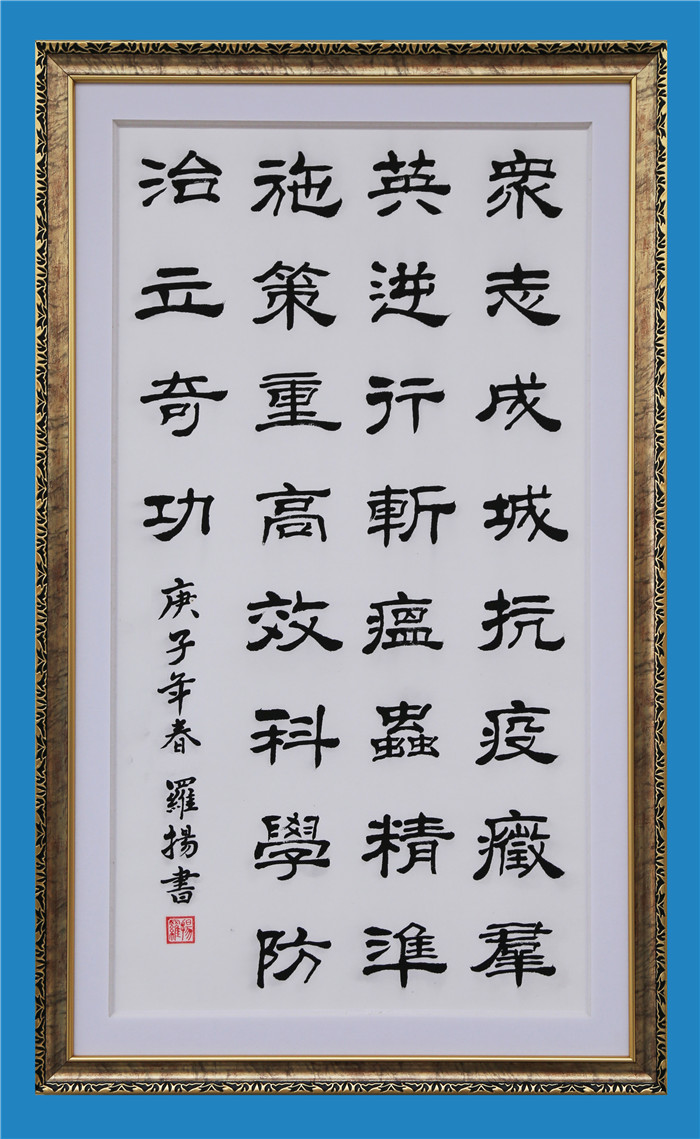 衆志成城抗疫癥羣
英逆行斬瘟蟲精準
施策重高效科學防
治立奇功
庚子年春 羅揚書
羅揚